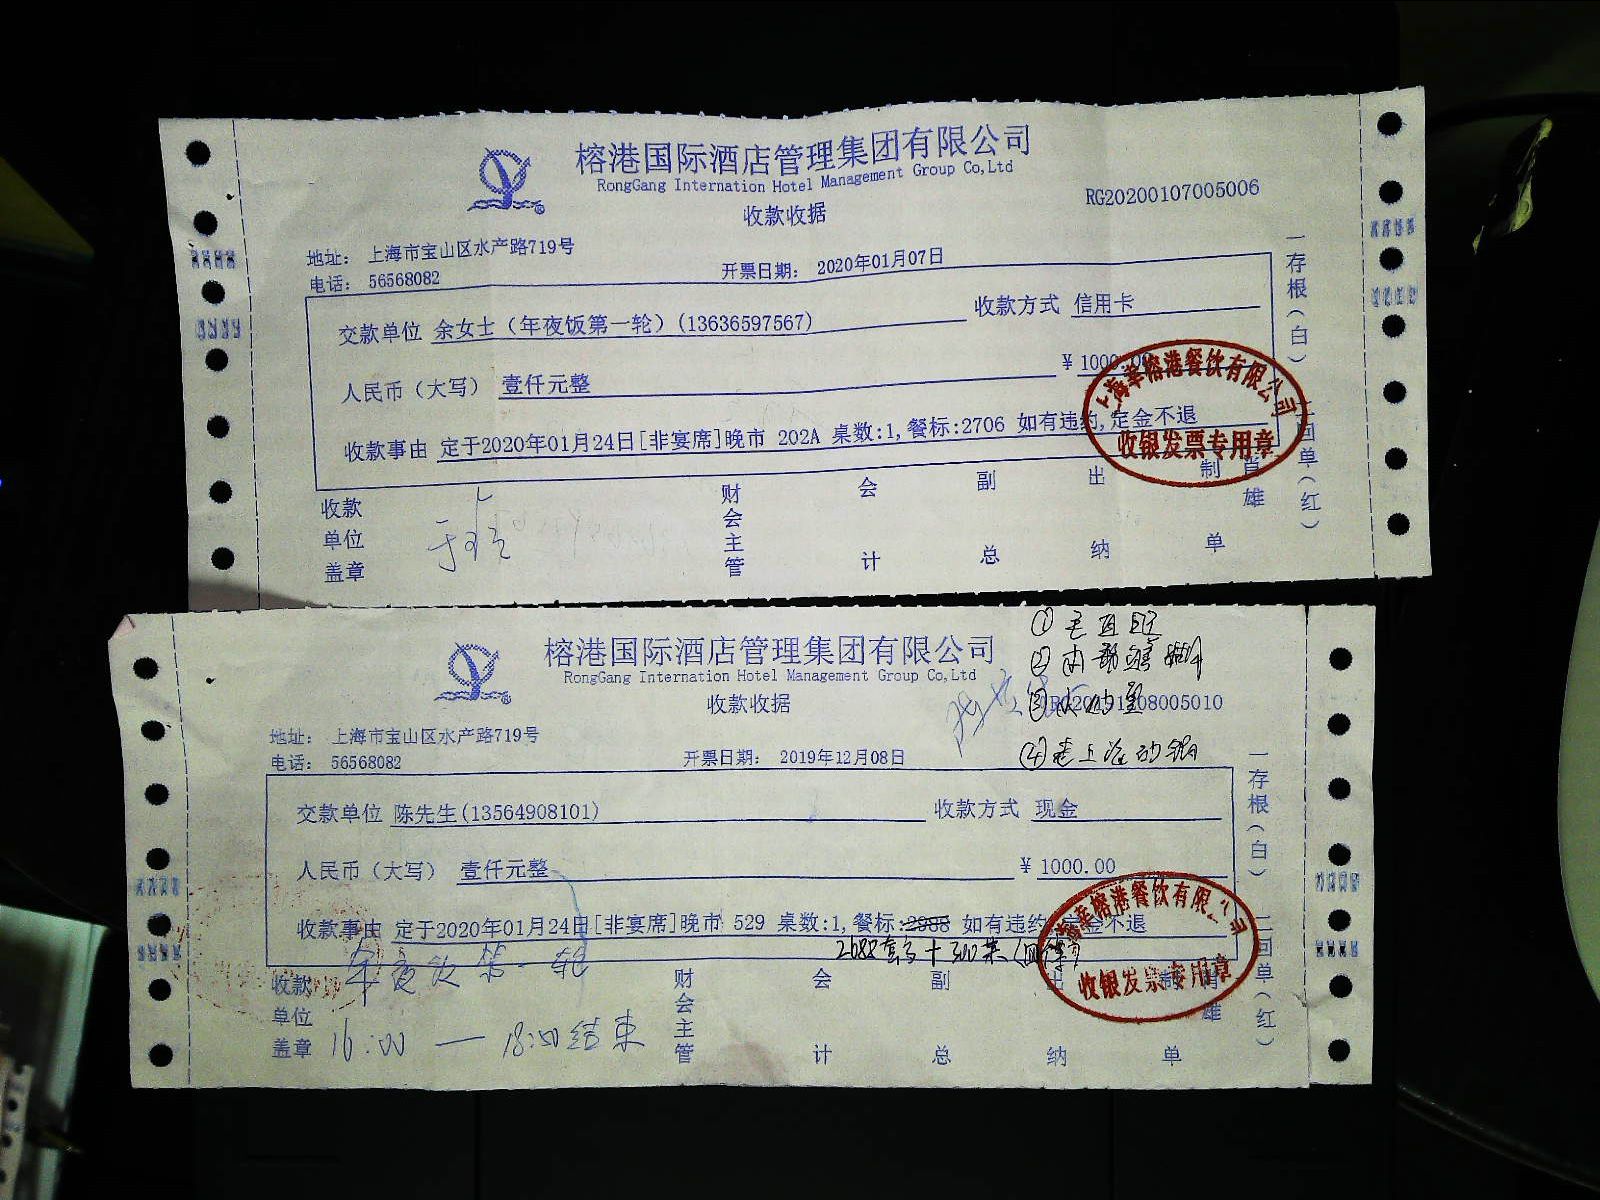 榕港国际酒店管理集团有限公司
RongGang Internation Hotel Management Group Co,Ltd
收款收据
RG20200107005006
地址： 上海市宝山区水产路719号
电话： 56568082
开票日期： 2020年01月07日
交款单位 余女士（年夜饭第一轮）(13636597567)
收款方式 信用卡
人民币（大写） 壹仟元整
¥ 1000.00
收款事由 定于2020年01月24日[非宴席]晚市 202A 桌数:1,餐标:2706 如有违约,定金不退
上海莘榕港餐饮有限公司
收银发票专用章
收款单位盖章
财会主管
会计
副总
出纳
制单
肖雄
一存根（白）
二回单（红）
榕港国际酒店管理集团有限公司
RongGang Internation Hotel Management Group Co,Ltd
收款收据
①
②
③
④老上海
08005010
地址： 上海市宝山区水产路719号
电话： 56568082
开票日期： 2019年12月08日
交款单位 陈先生(13564908101)
收款方式 现金
人民币（大写） 壹仟元整
¥ 1000.00
收款事由 定于2020年01月24日[非宴席]晚市 529 桌数:1,餐标:2988 如有违约,定金不退
2688套 + 300菜
年夜饭第一轮
16:00 — 18:50结束
榕港餐饮有限公司
收银发票专用章
收款单位盖章
财会主管
会计
副总
出纳
制单
肖雄
一存根（白）
二回单（红）